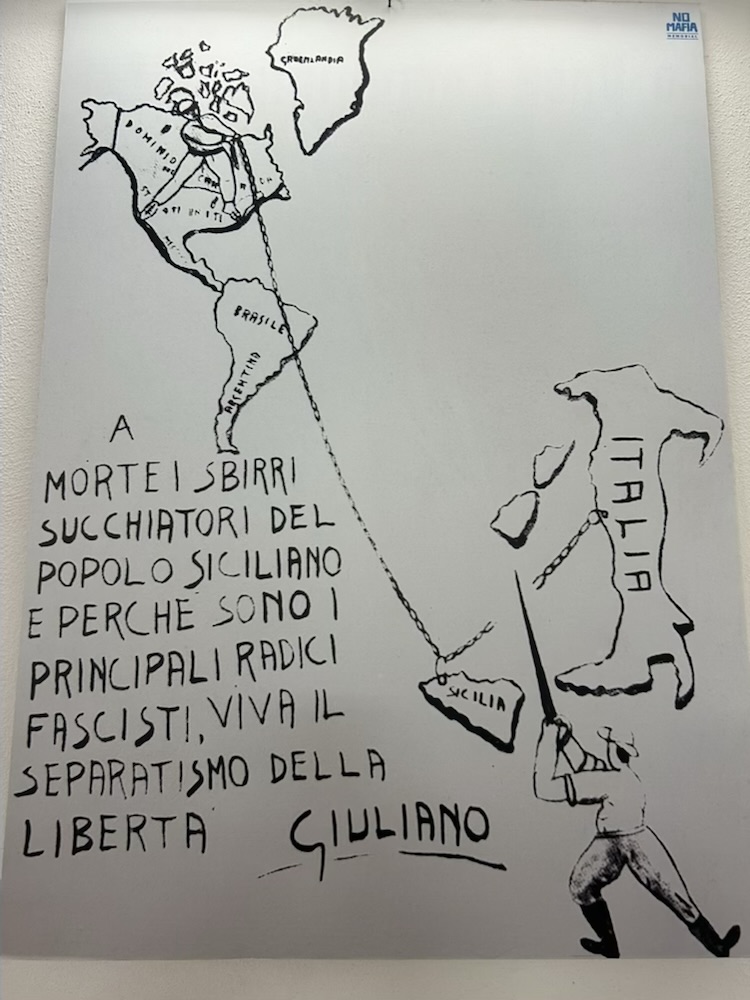 NO
MAFIA
MEMORIAL
GROENLANDIA
DOMINIO
STATI UNITI
BRASILE
ARGENTINO
A
MORTE I SBIRRI
SUCCHIATORI DEL
POPOLO SICILIANO
E PERCHÈ SONO I
PRINCIPALI RADICI
FASCISTI, VIVA IL
SEPARATISMO DELLA
LIBERTA
GIULIANO
ITALIA
SICILIA